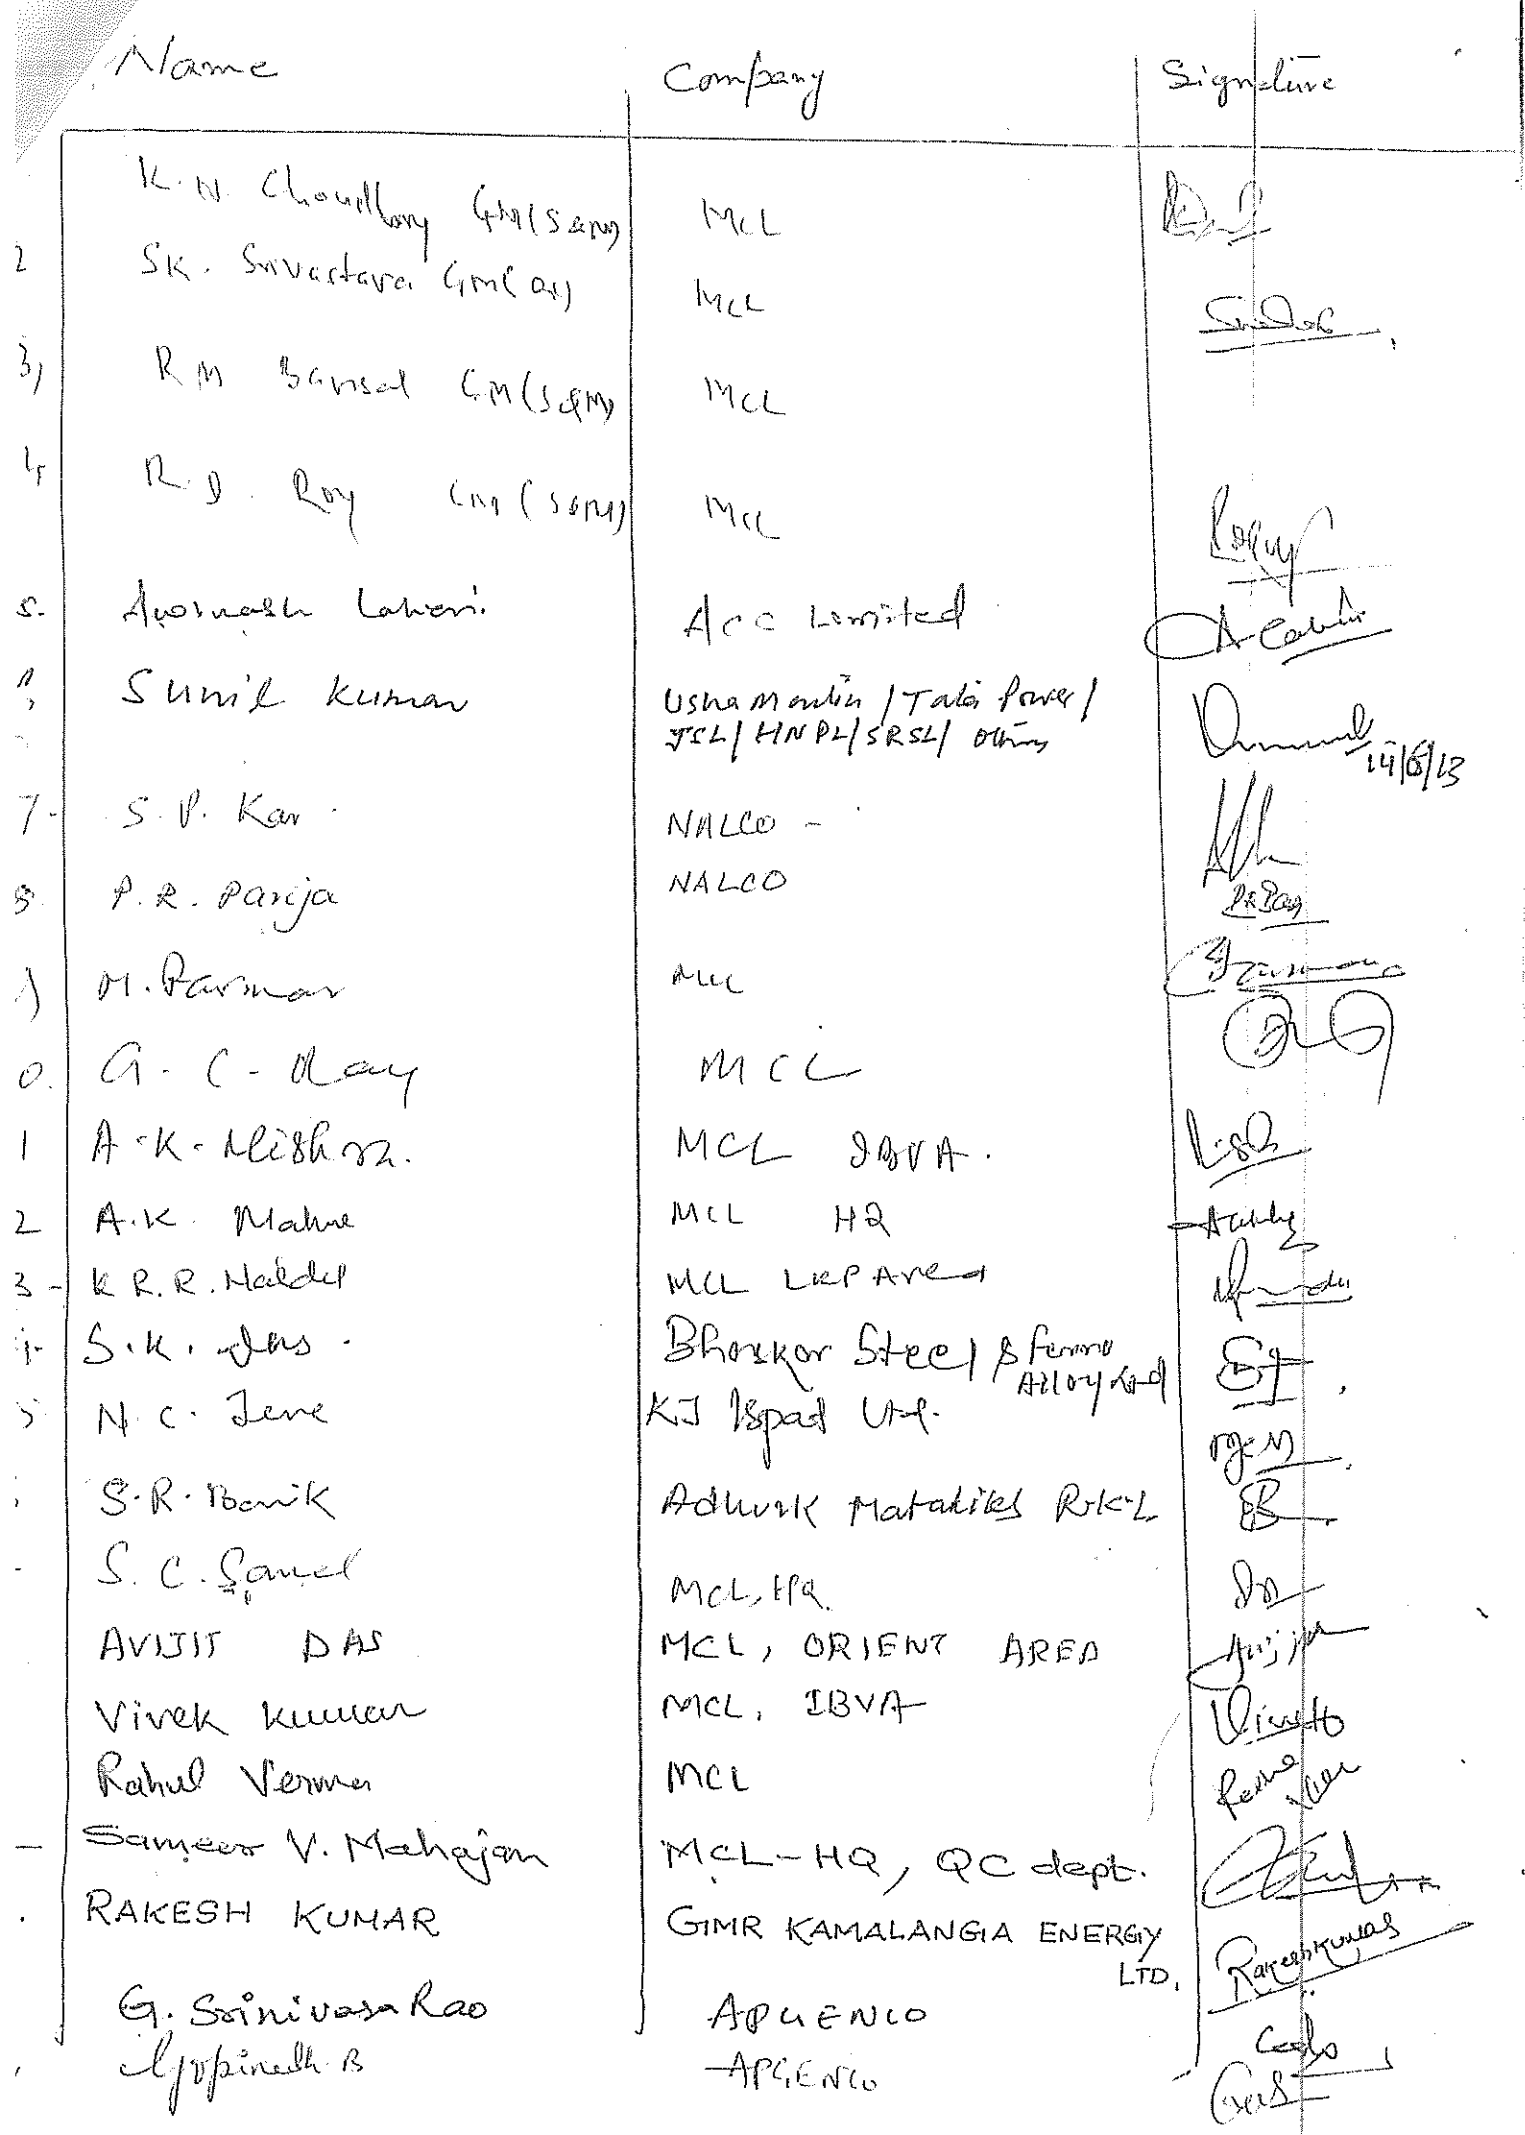 Name Company Signature
K.N. Choudhary GM(S&M) MCL
2 SK. Srivastava GM( MCL
3, R M Bansal GM(S&M) MCL
4, R.D. Roy GM(S&M) MCL Roy
5. Avinash Lahoti ACC Limited
Sunil Kumar Usha Martin / Tata Power /
JSL/ HNPL/SRSL/ Others
14/6/13
7- S.P. Kar NALCO -
8 P.R. Parija NALCO
9) M. Parmar MCL Parmar
0. G. C. Ray MCL
1 A.K. Mishra. MCL IBVA.
2 A.K. MCL HQ
3 - K R.R. Naidu MCL LKP Area
4. S.K. Das. Bhaskar Steel & Ferro
Alloy Ltd
5 N.C. Jena KJ Ispat Ltd.
S.R. Barik Adhunik Metaliks R.K.L
S.C. Samal MCL, HQ.
AVIJIT DAS MCL, ORIENT AREA
Vivek Kumar MCL, IBVA
Rahul Verma MCL
— Sameer V. Mahajan MCL-HQ, QC dept.
. RAKESH KUMAR GMR KAMALANGA ENERGY
LTD. Rakesh Kumar
G. Srinivasa Rao APGENCO
Gopinadh. B APGENCO